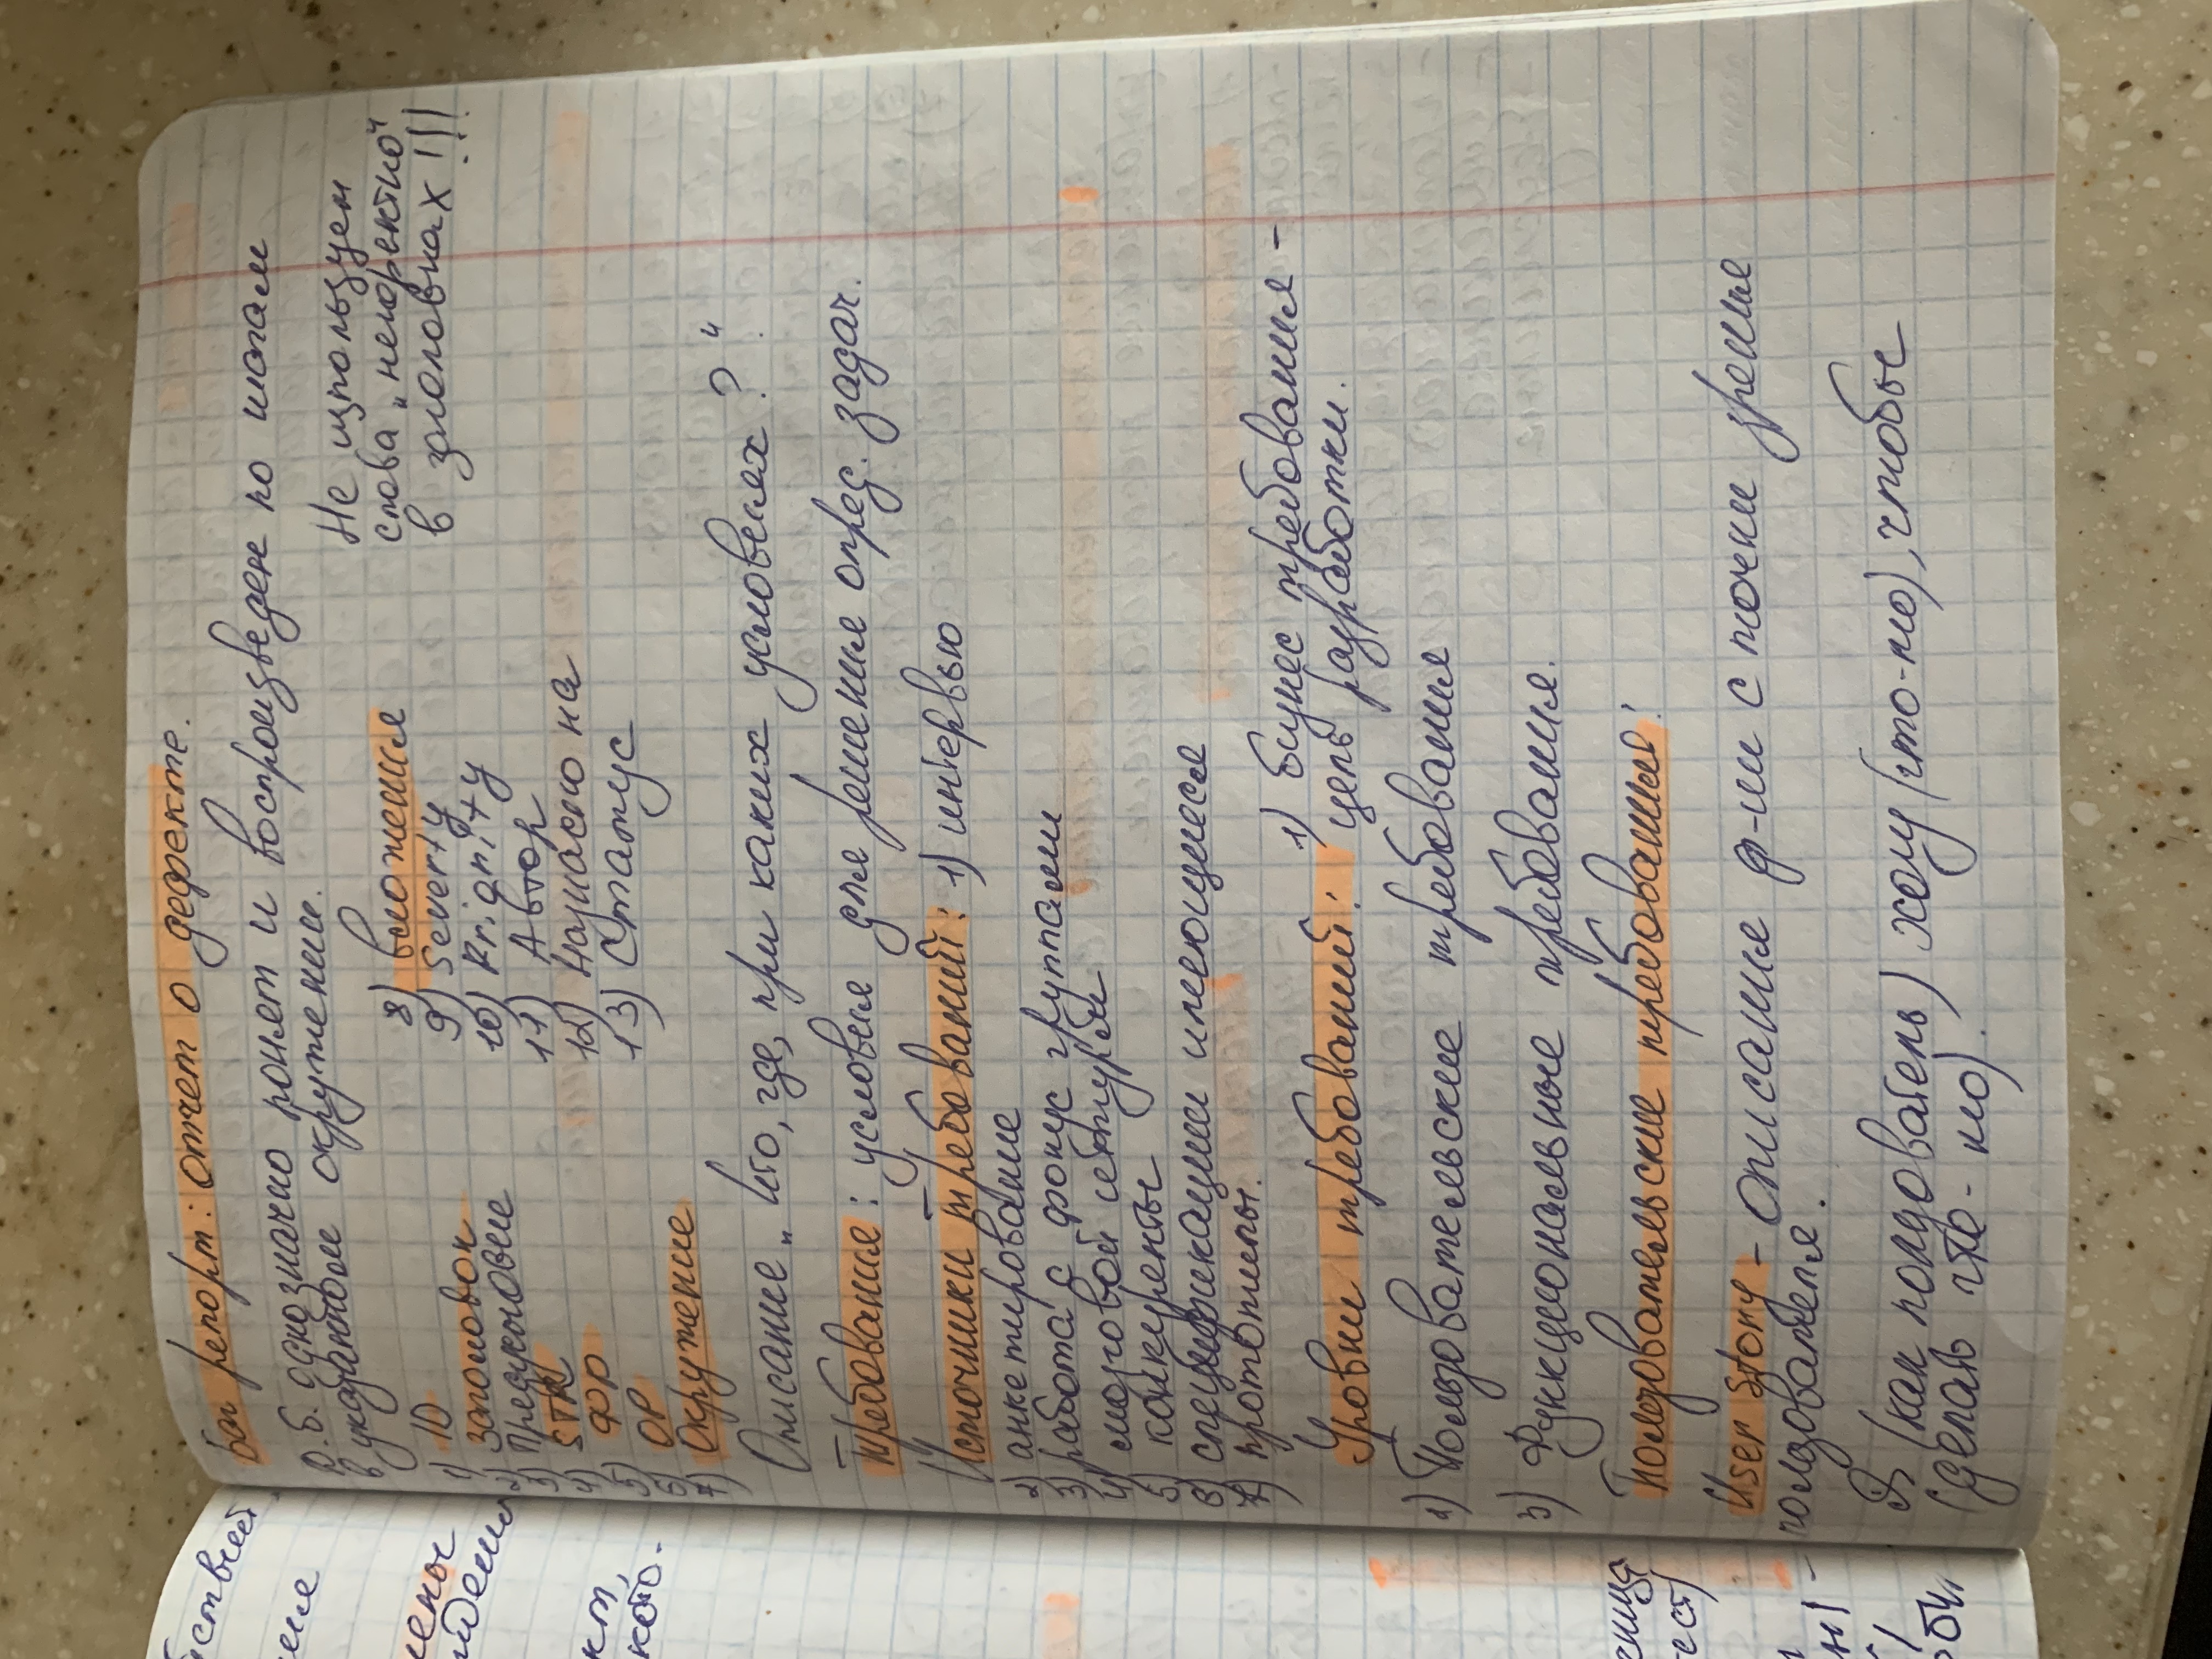 йствий
ния
лены
ждения
кт,
кото-
ница
тест)
Баг репорт: отчет о дефекте.
Д.б. однозначно понят и воспроизведен по шагам
в указанном окружении.
Не используем
слова „некоректно“
в заголовках!!!
1) ID
2) Заголовок
3) Предусловие
4) STR
5) ФР
6) ОР
7) Окружение
8) вложения
9) Severty
10) Priority
11) Автор
12) Назначено на
13) Статус
Описание „Что, где, при каких условиях?“
Требования: условия для решения опред. задач.
Источники требований: 1) интервью
2) анкетирование
3) работа с фокус группами
4) мозговой штурм
5) конкуренты
6) спецификации имеющиеся
7) прототипы.
Уровни требований: 1) бизнес требования -
цель разработки.
2) Пользовательские требования
3) Функциональные требования.
Пользовательские требования:
User Story - описания ф-ии с точки зрения
ползователя.
Я (как ползователь) хочу (что-то), чтобы
(делать что-то).